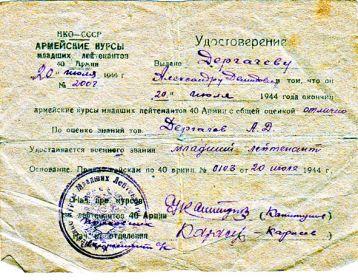 НКО—СССР
АРМЕЙСКИЕ КУРСЫ
младших лейтенантов
40 Армии
20 июля 1944 г.
№ 2007
Удостоверение
Выдано Дергачеву
Александру в том, что он
20 июля 1944 года окончил
армейские курсы младших лейтенантов 40 Армии с общей оценкой отлично
По оценке знаний тов. Дергачев А. Д.
Удостаивается военного звания младший лейтенант
Основание. Приказ войскам по 40 армии. № 0103 от 20 июля 1944 г.
Нач. курсов
лейтенантов 40 Армии
Нач. отделения